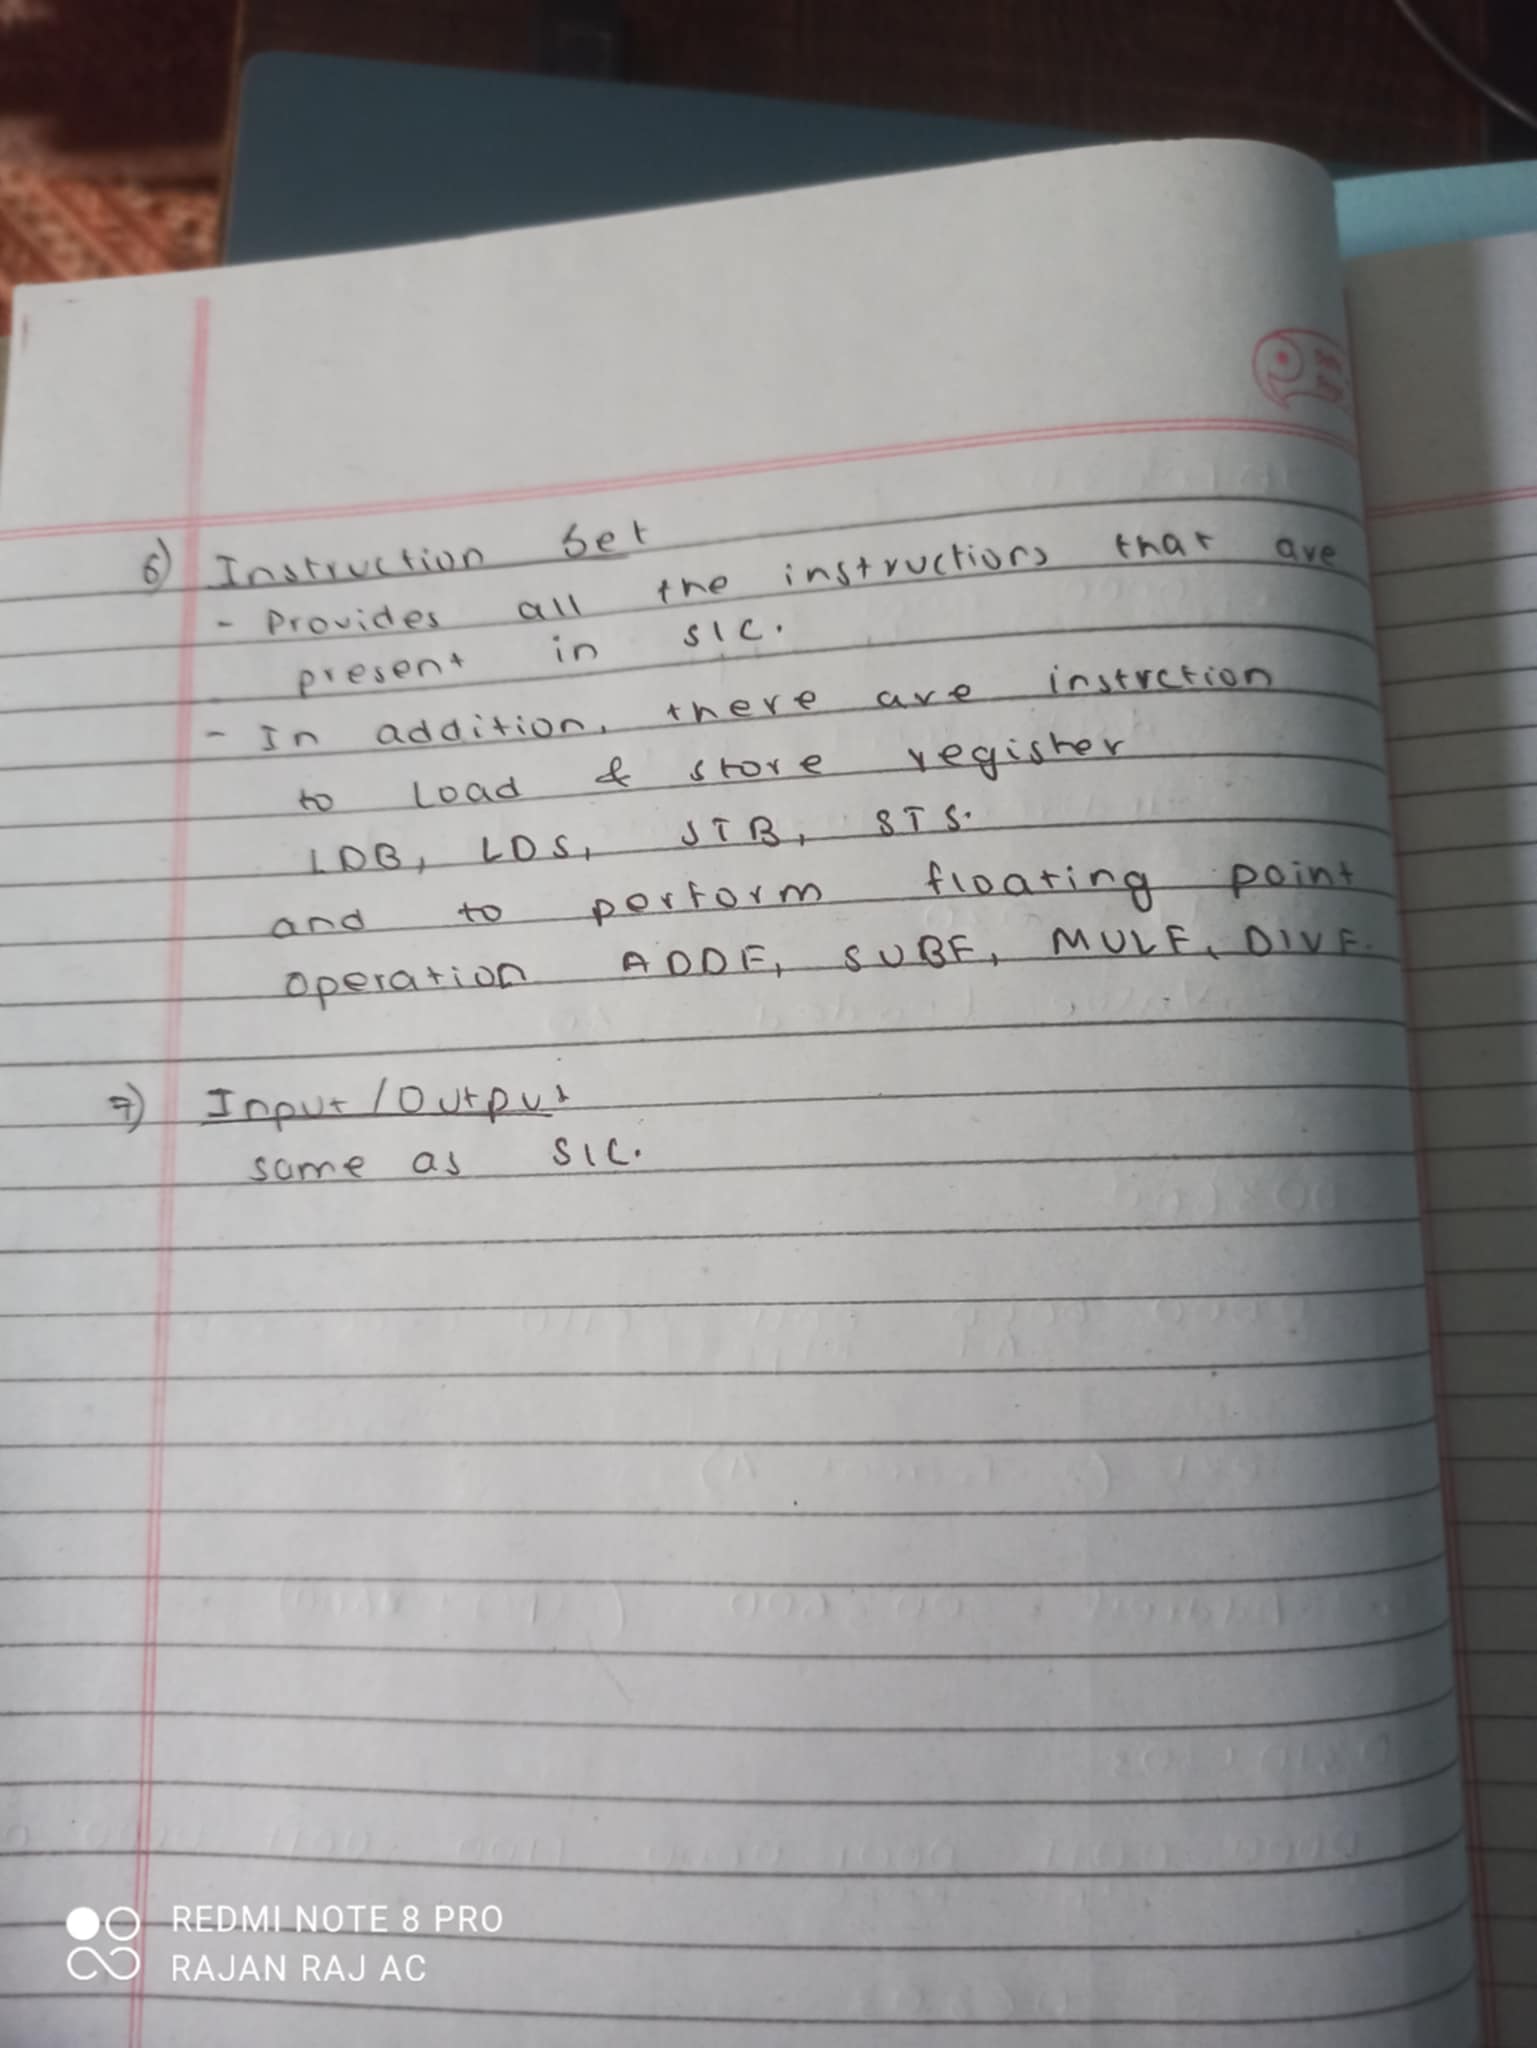 6) Instruction Set
- Provides all the instructions that are
present in SIC.
- In addition, there are instrction
to Load & store register
LDB, LDS, STB, STS.
and to perform floating point
operation ADDF, SUBF, MULF, DIVF.
7) Input/Output
same as SIC.
REDMI NOTE 8 PRO
RAJAN RAJ AC